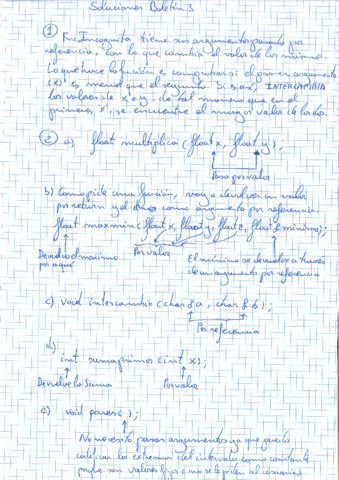 Soluciones Boletín 3
① FunIncognita tiene sus argumentos pasados por
referencia, con lo que cambia el valor de los mismos.
Lo que hace la función es comprobar si el primer argumento
(x) es menor que el segundo. Si es así, INTERCAMBIA
los valores de x e y, de tal manera que en el
primero, x, se encuentre el mayor valor de los dos.
② a) float multiplica (float x, float y);
Paso por valor
b) Como pide una función, voy a devolver un valor
por return y el otro como argumento por referencia
float maxmin (float x, float y, float z, float & minimo);
Devuelve el máximo Por valor El mínimo se devuelve a través
por aquí de un argumento por referencia
c) void intercambio (char & a, char & b);
Por referencia
d)
int sumaprimos (int x);
Devuelve la suma Por valor
e) void pares ();
No necesito pasar argumentos ya que puedo
codificar los extremos del intervalo como constante
pues son valores fijos que no se le piden al usuario